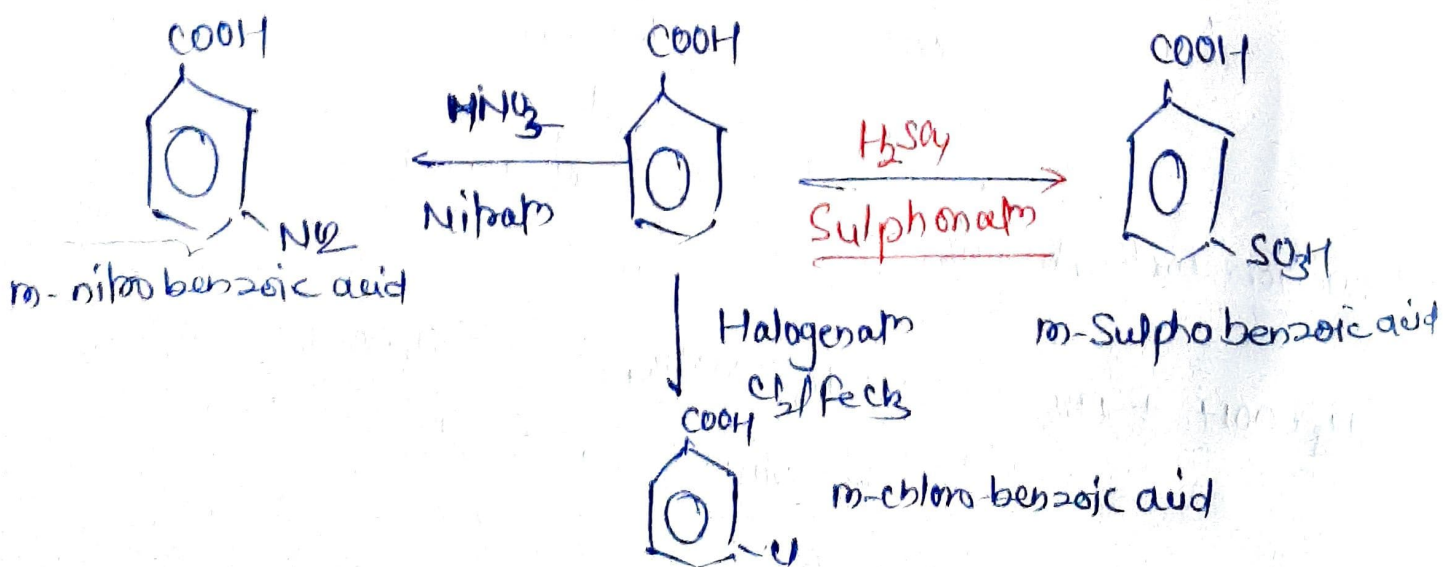 COOH
HNO3
Nitratn
NO2
m-nitrobenzoic acid
COOH
H2SO4
Sulphonatn
COOH
SO3H
m-Sulphobenzoic acid
Halogenatn
Cl2/FeCl3
COOH
Cl
m-chloro-benzoic acid